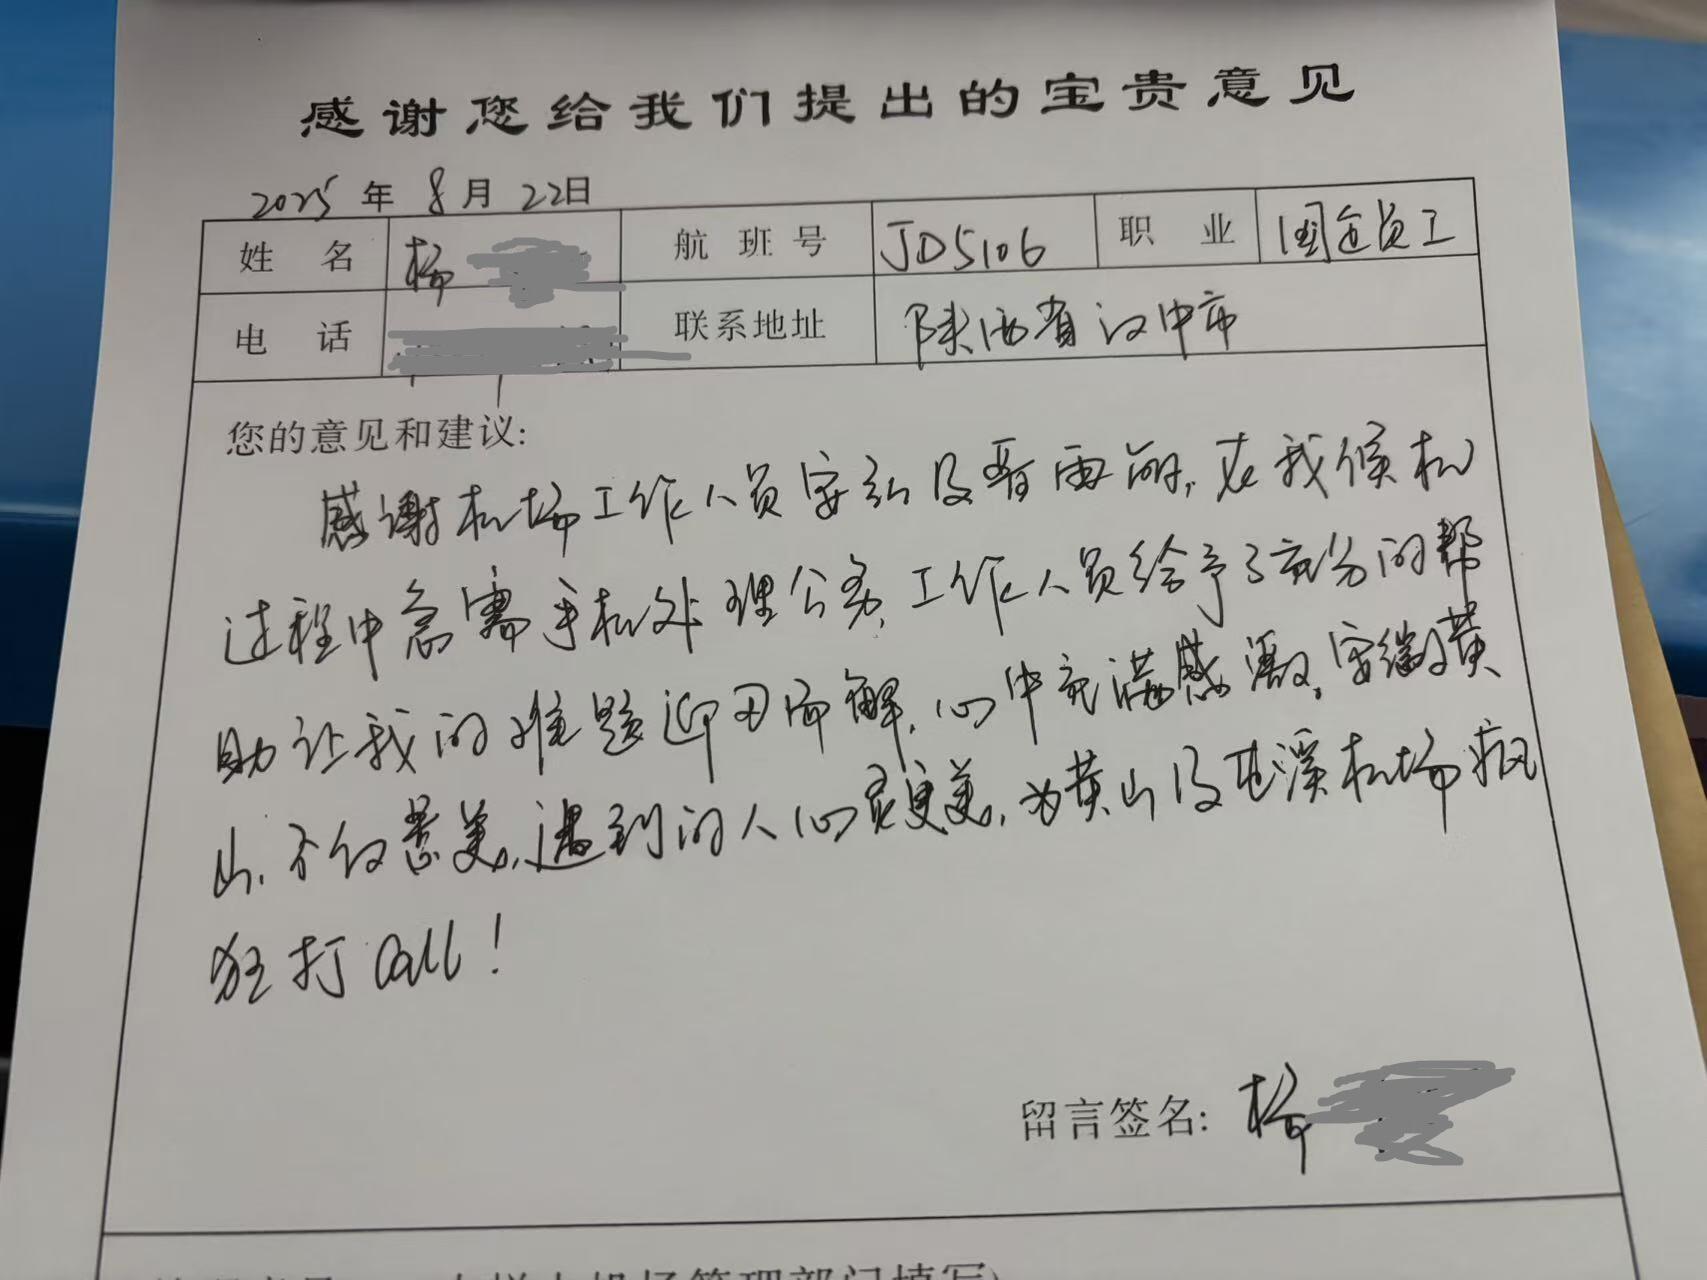 感谢您给我们提出的宝贵意见
2025年8月22日
姓 名 杨 航班号 JD5106 职 业 国企员工
电 话 联系地址 陕西省汉中市
您的意见和建议:
感谢机场工作人员 及 雨 ,在我候机
过程中急需手机处理公务,工作人员给予了充分的帮
助让我的难题迎刃而解,心中充满感激。安徽黄
山,不仅景美,遇到的人心灵更美,为黄山及屯溪机场疯
狂打call!
留言签名: 杨
机场管理部门填写)